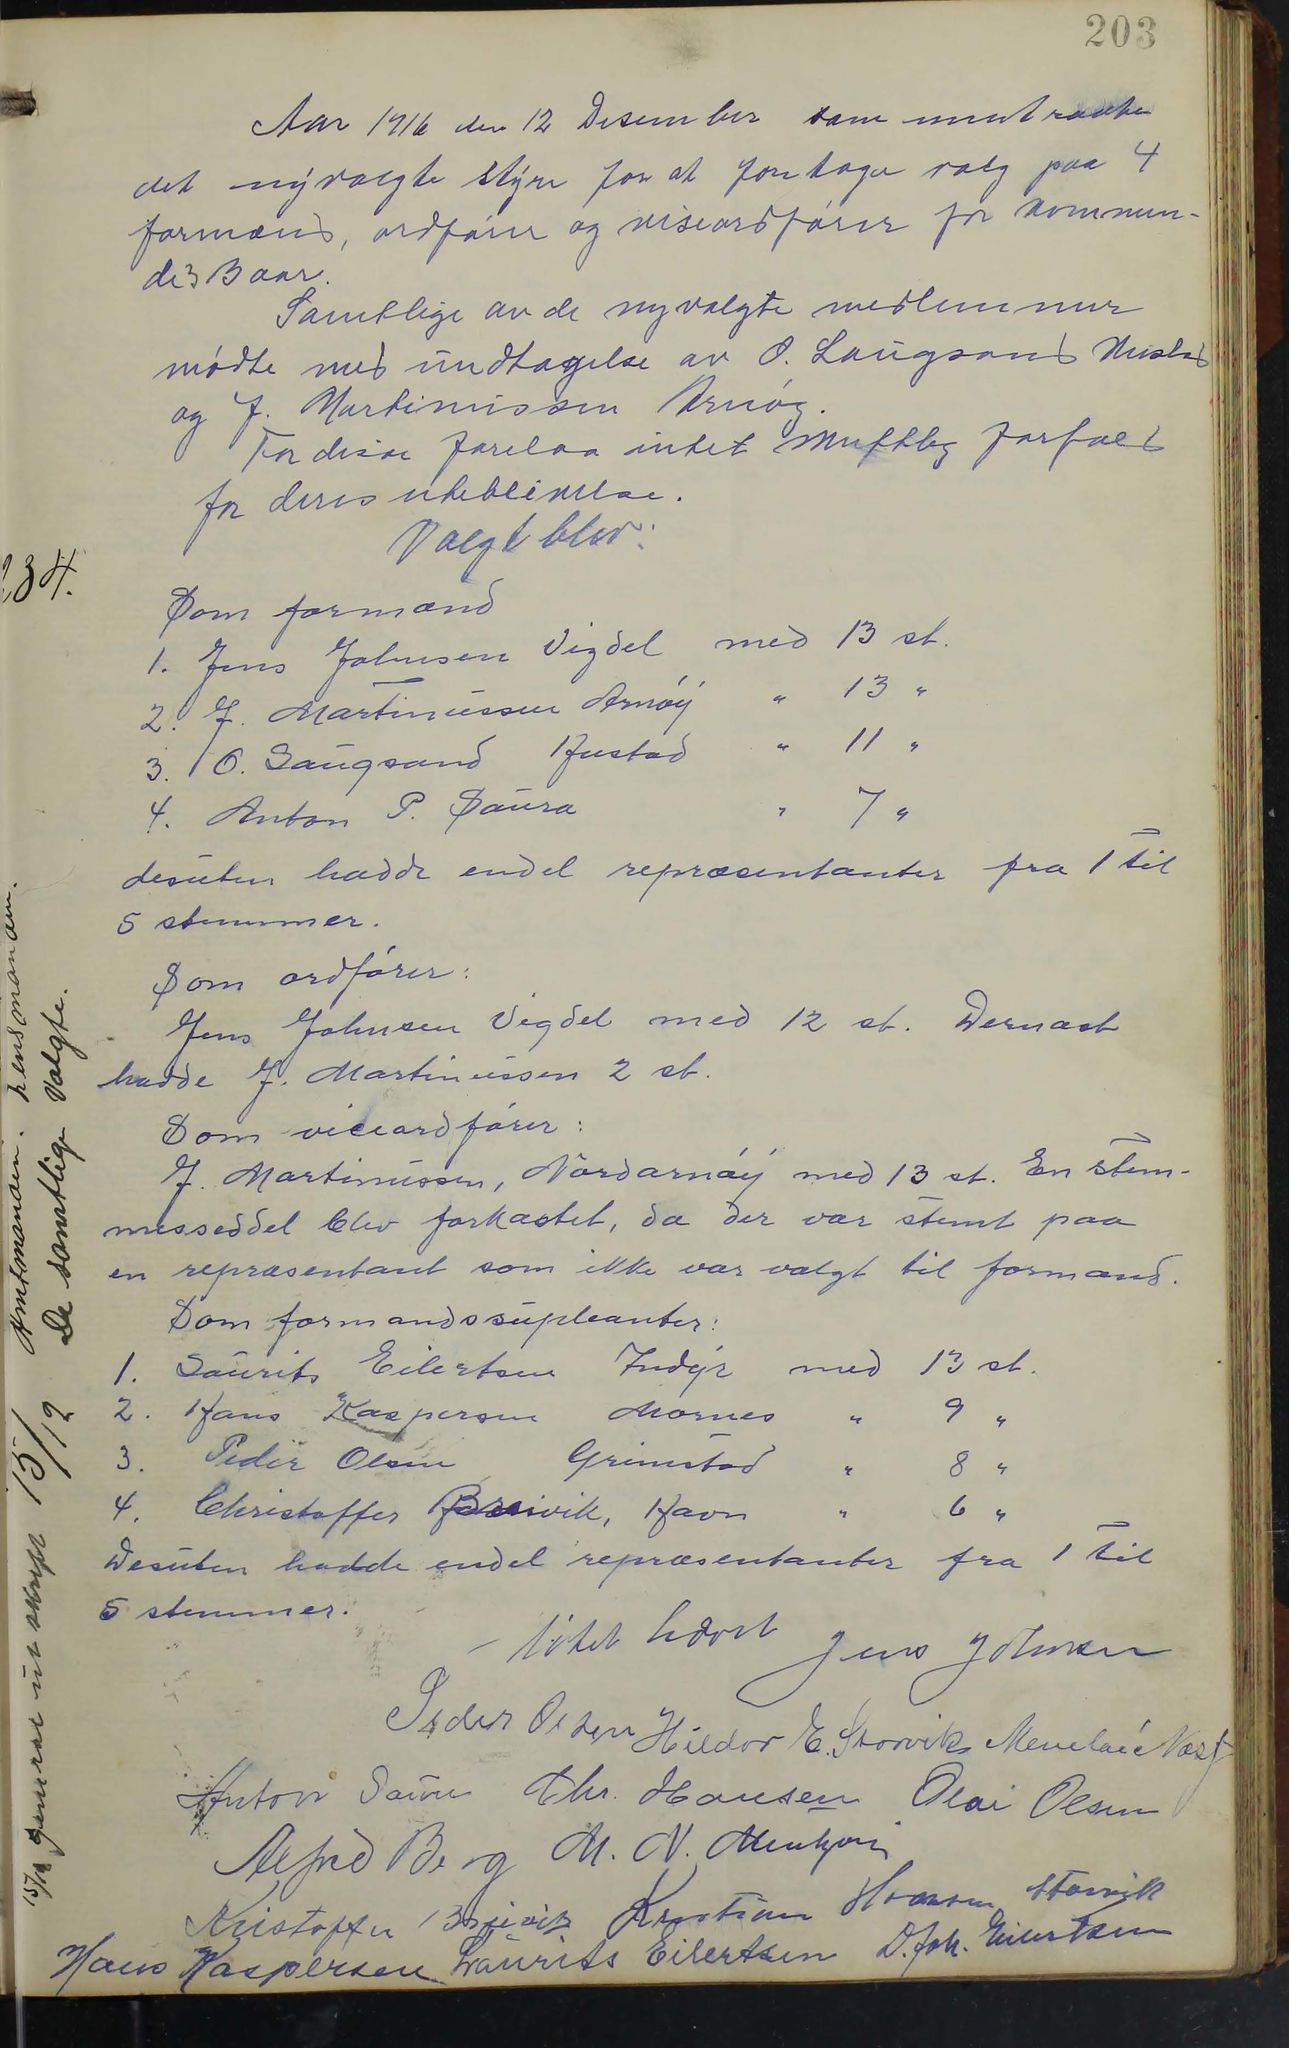 203
Aar 1916 den 12 Desember
det nyvalgte styre for at foretage valg paa 4
formænd, ordfører og viseordfører for kommen-
de 3 aar.
Samtlige av de nyvalgte medlemmer
mødte med undtagelse av O. Laugsand
og J. Martinussen Arnøy.
For disse forelaa intet forfald
for deres uteblivelse.
Valgt blev:
234.
Som formænd
1. Jens Johnsen Vigdel med 13 st.
2. J. Martinussen Arnøy " 13 "
3. O. Laugsand Hustad " 11 "
4. Anton P. Saura " 7 "
desuten hadde endel repræsentanter fra 1 til
5 stemmer.
Som ordfører:
Jens Johnsen Vigdel med 12 st. Dernæst
hadde J. Martinussen 2 st.
Som viceordfører:
J. Martinussen, Nordarnøy med 13 st. En stem-
messeddel blev forkastet, da der var stemt paa
en repræsentant som ikke var valgt til formand.
Som formandssupleanter:
1. Laurits Eilertsen Indyr med 13 st.
2. Hans Kaspersen Mornes " 9 "
3. Peder Olsen Grimstad " 8 "
4. Christoffer Breivik, Havn " 6 "
Desuten hadde endel repræsentanter fra 1 til
5 stemmer.
Møtet hævet Jens Johnsen
Peder Olsen Hildor E. Storvik
Anton Saura Chr. Hansen Olai Olsen
Alfred Berg M. N.
Kristoffer Breivik Kristian Hansen Storvik
Hans Kaspersen Laurits Eilertsen D. Joh. Eilertsen
15/12 utskrift 15/12 Amtmanden. Lensmanden.
De samtlige valgte.